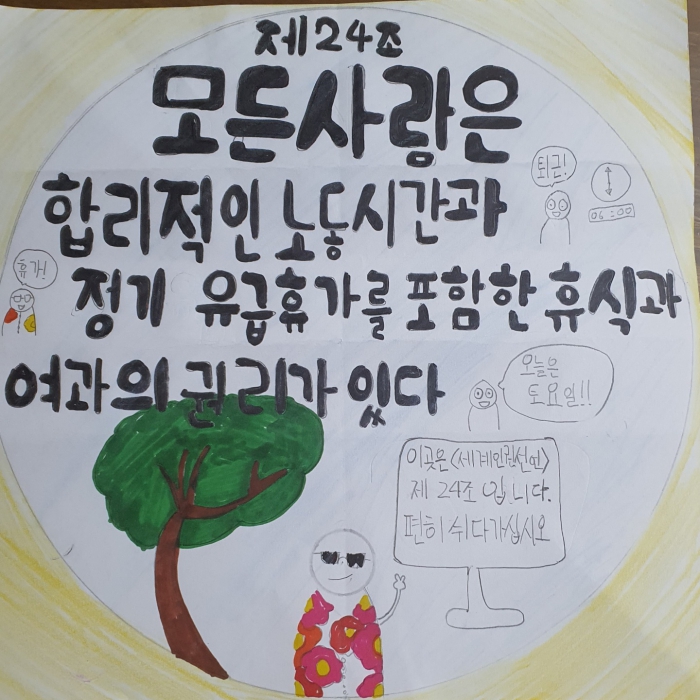 제24조
모든사람은
합리적인 노동시간과
퇴근!
06:00
휴가!
정기 유급휴가를 포함한 휴식과
여과의 권리가 있다
오늘은
토요일!!
이곳은 <세계인권선언>
제 24조 입니다.
편히 쉬다가십시오